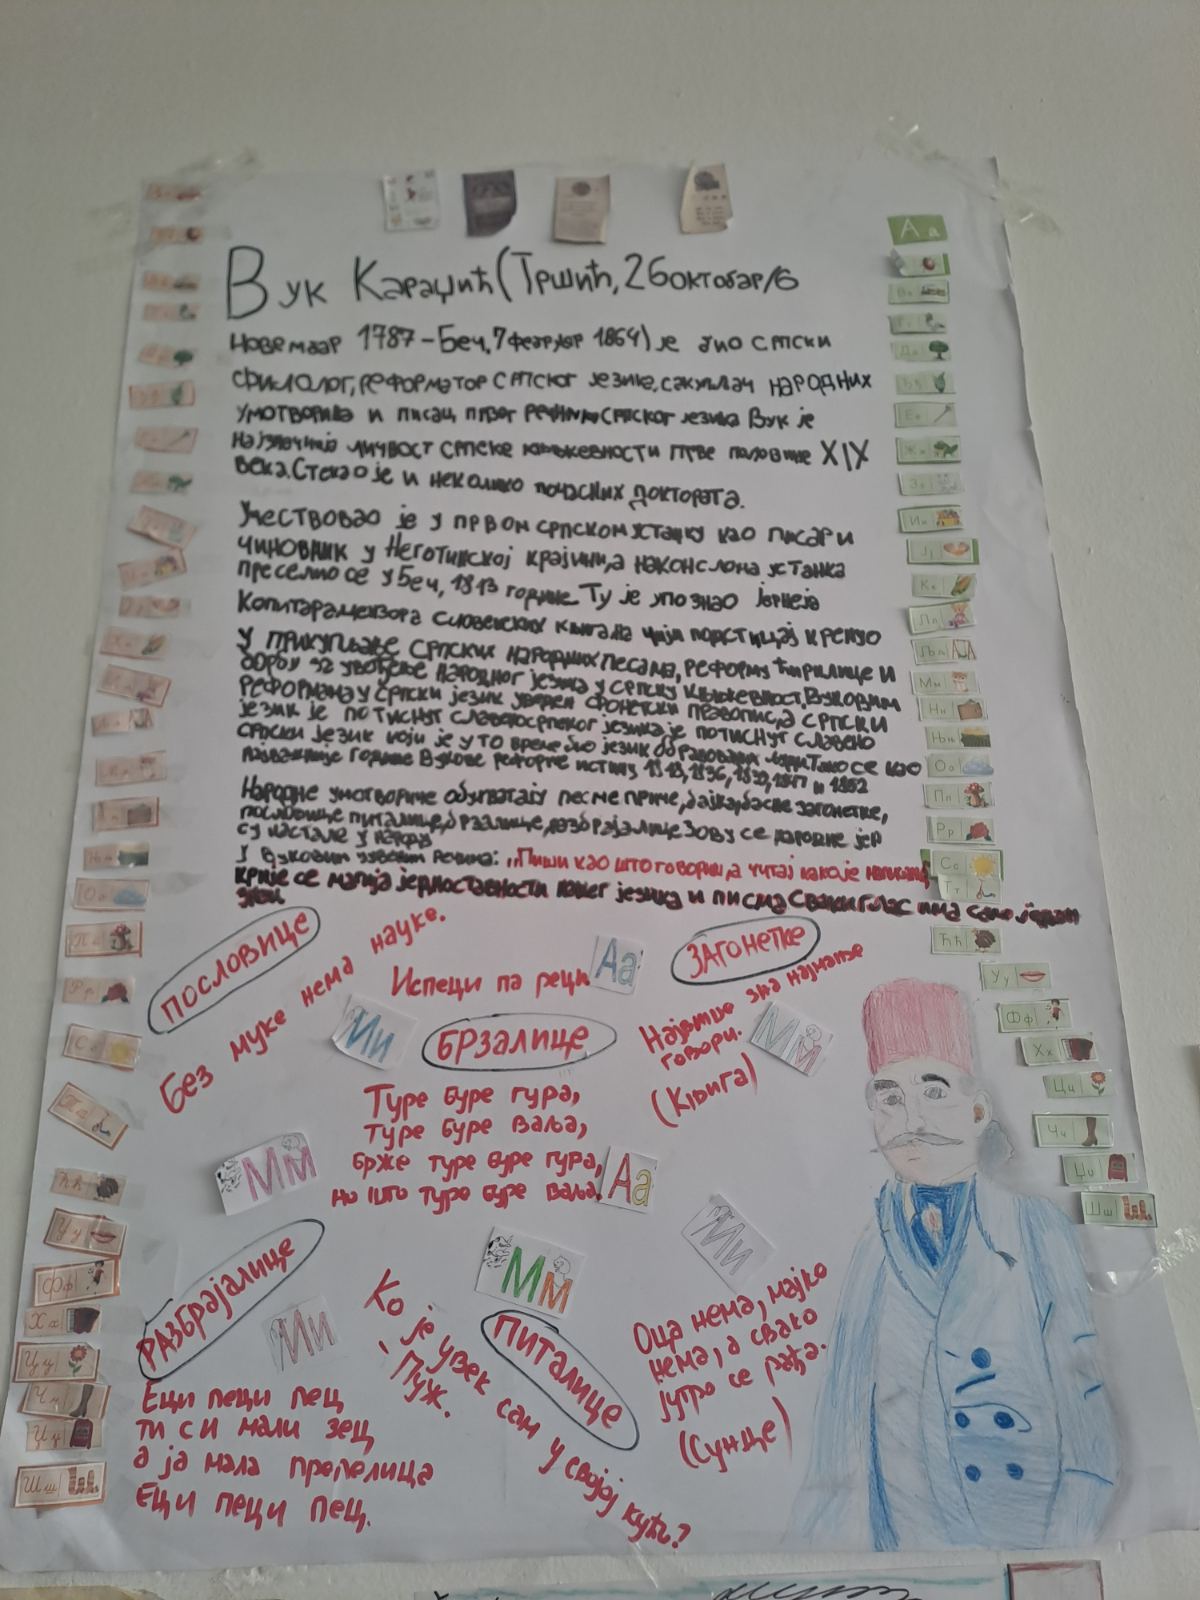 Вук Караџић (Тршић, 26 октобар/6
Новембар 1787 – Беч, 7 фебруар 1864) је био српски
филолог, реформатор српског језика, сакупљач народних
умотворина и писац првог речника српског језика Вук је
најзначнија личност српске књижевности прве половине XIX
века. Стекао је и неколико почасних доктората.
Учествовао је у првом српском устанку као писар и
чиновник у Неготинској крајини, а након слома устанка
преселио се у Беч, 1813 године. Ту је упознао Јернеја
Копитара цензора словенских књига на чији подстицај кренуо
у прикупљање српских народних песама, реформу ћирилице и
борбу за увођење народног језика у српску књижевност. Вуковим
реформама у српски језик уведен фонетски правопис, а српски
језик је потиснут славеносрпског језика је потиснут славено
српски језик који је у то време био језик образованих људи. Тако се као
најважније године Вукове реформе истичу 1818, 1836, 1839, 1847 и 1852
Народне умотворине обухватају песме приче, бајке, басне загонетке,
пословице питалице, брзалице, разбрајалице Зову се народне јер
су настале у народу
У Вуковим речима: „Пиши као што говориш, а читај како је написано
крије се магија једноставности нашег језика и писма Сваки глас има само један
знак
ПОСЛОВИЦЕ
Без муке нема науке.
Испеци па реци
Аа
ЗАГОНЕТКЕ
зна најмање
говори.
(Књига)
Ии
Мм
БРЗАЛИЦЕ
Туре буре гура,
туре буре ваља,
брже туре буре гура,
но што туре буре ваља.
Мм
Аа
РАЗБРАЈАЛИЦЕ
Ии
Еци пеци пец
ти си мали зец
а ја мала препелица
Еци пеци пец.
Мм
ПИТАЛИЦЕ
Ко је увек сам у својој кући?
- Пуж.
Ии
Оца нема, мајко
нема, а свако
јутро се рађа.
(Сунце)
Оо
Пп
Рр
Сс
Ћћ
Уу
Фф
Хх
Цц
Чч
Џџ
Шш
Аа
Вв
Дд
Ђђ
Ее
Жж
Зз
Ии
Јј
Кк
Лл
Љљ
Мм
Нн
Њњ
Оо
Пп
Рр
Сс
Тт
Ћћ
Уу
Фф
Хх
Цц
Чч
Џџ
Шш